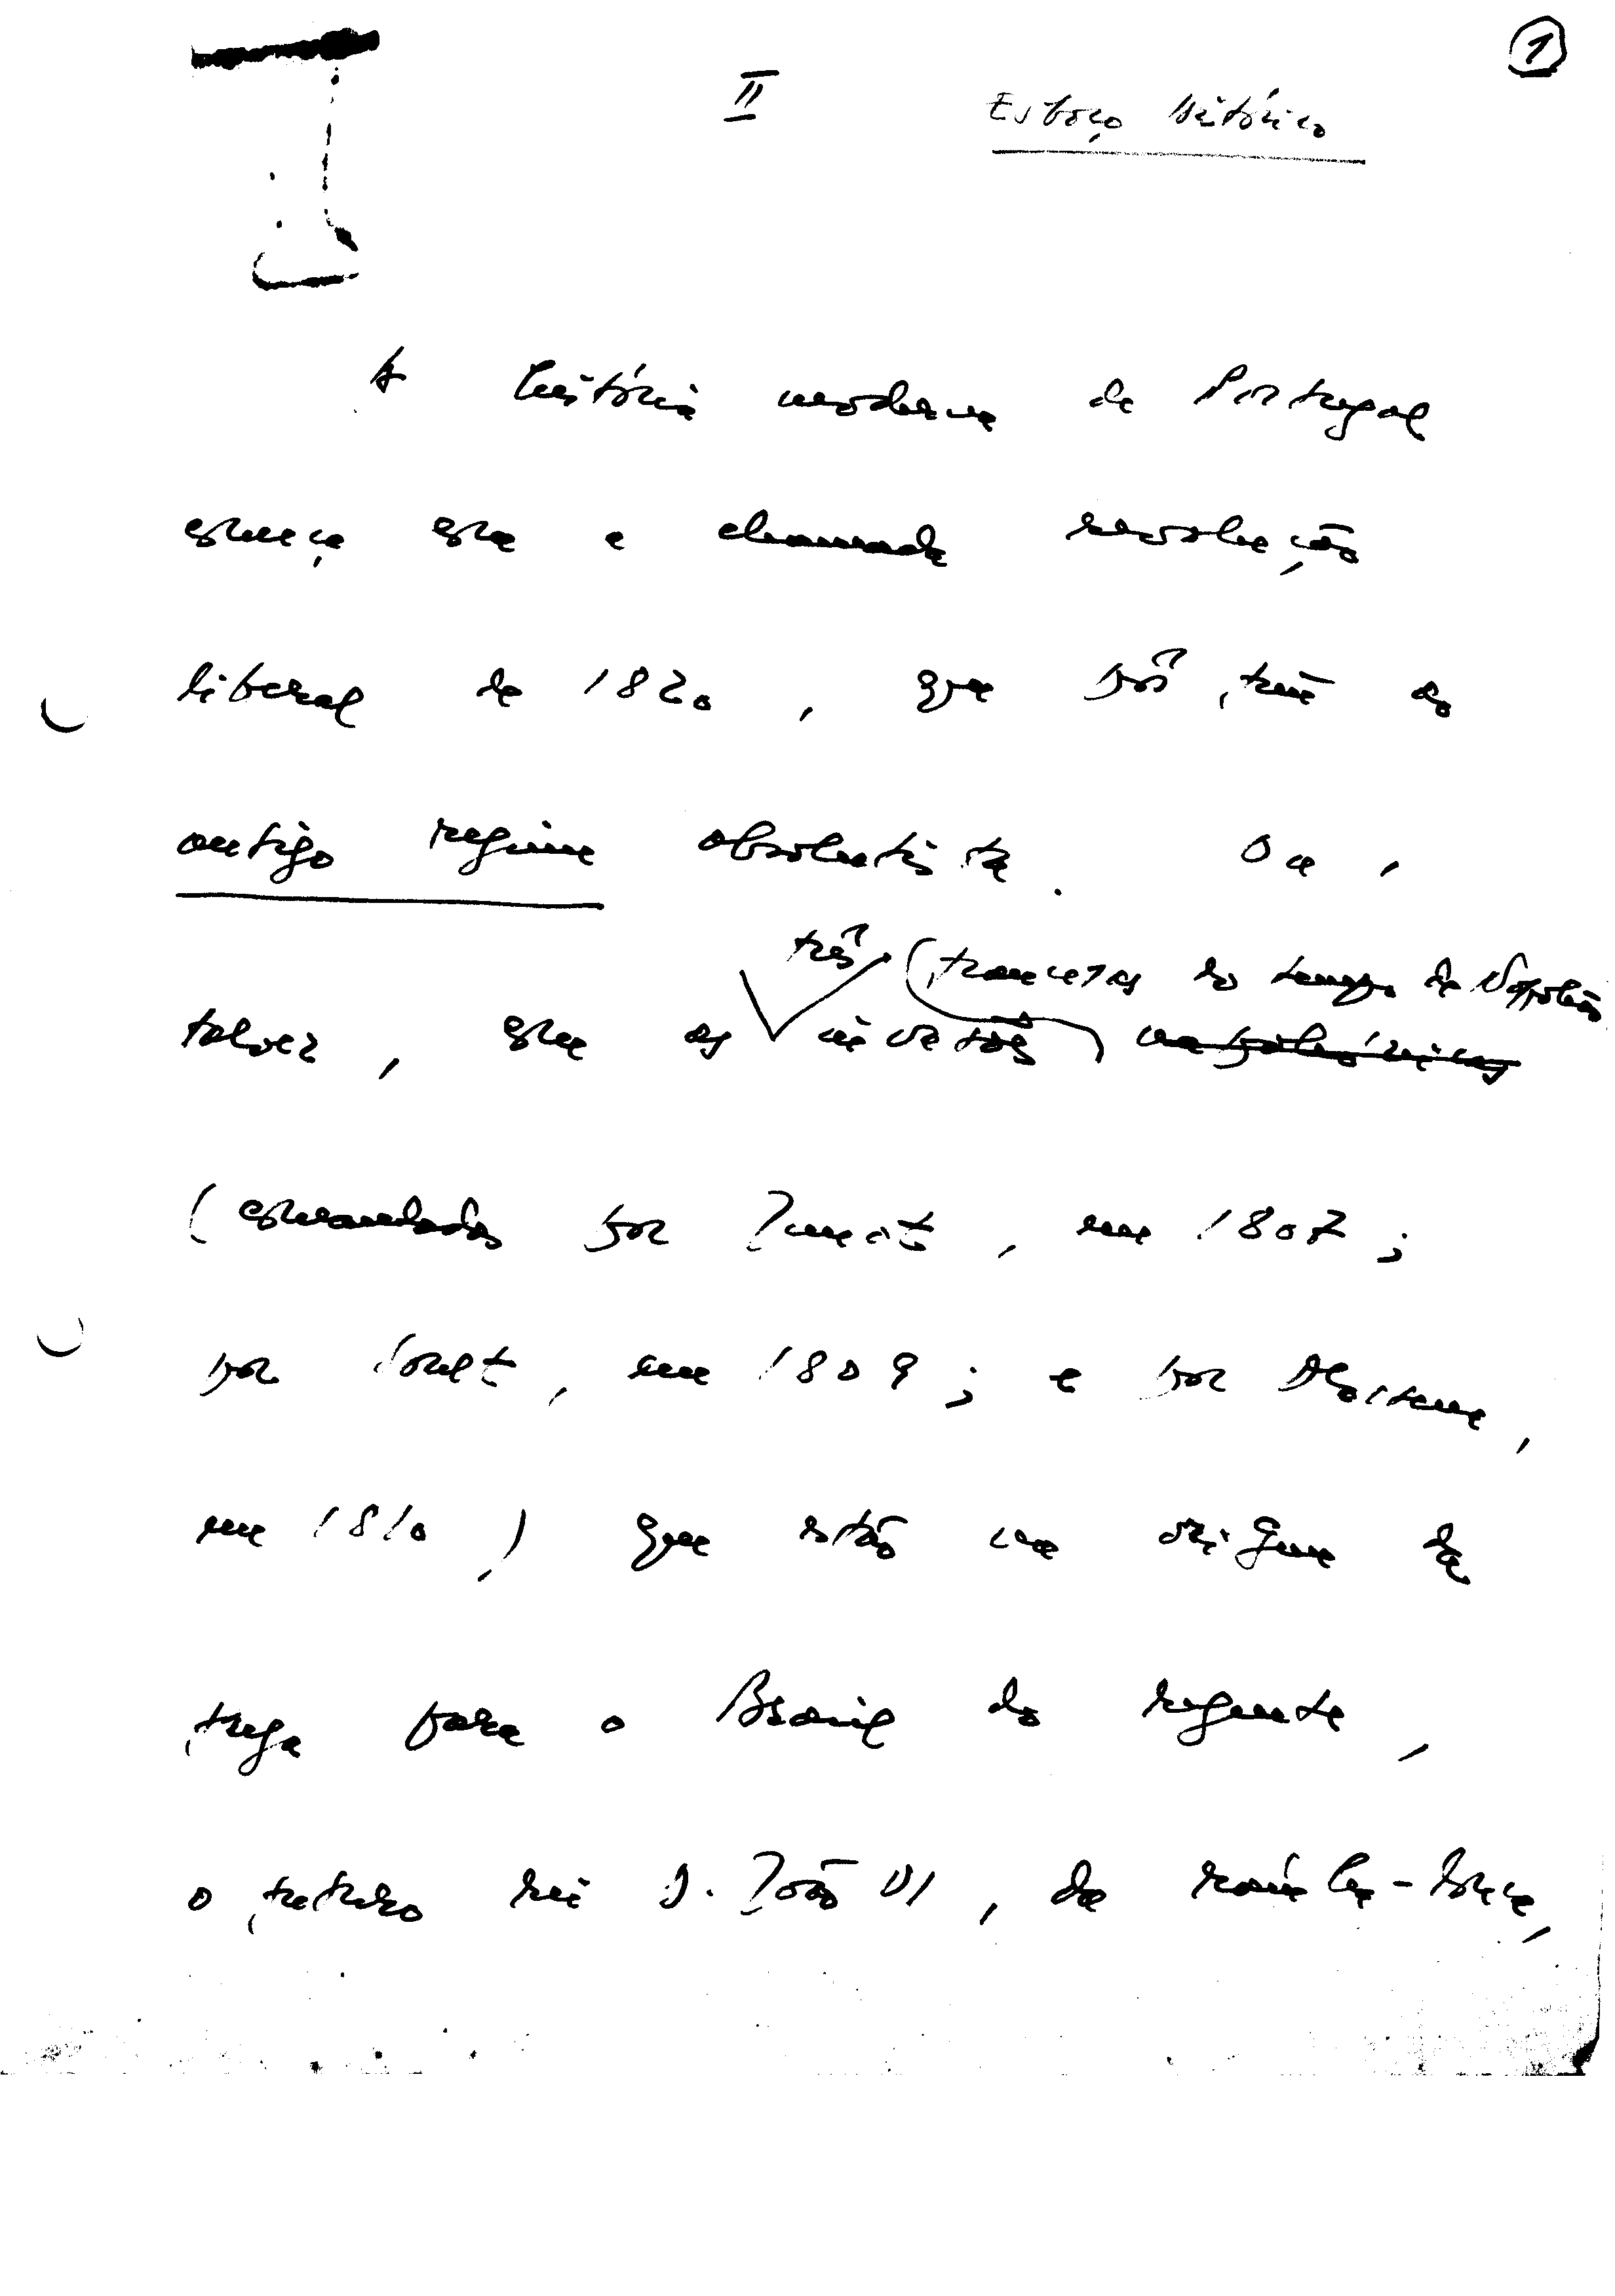 1
II Esboço histórico
A história moderna de Portugal
começa com a chamada revolução
liberal de 1820, que pôs fim ao
antigo regime absolutista. Ou,
três (francesas do tempo de Napoleão
talvez, com as invasões napoleónicas
(comandadas por Junot, em 1807;
por Soult, em 1809; e por Massena,
em 1810) que estão na origem da
fuga para o Brasil do regente,
o futuro rei D. João VI, da rainha-louca,